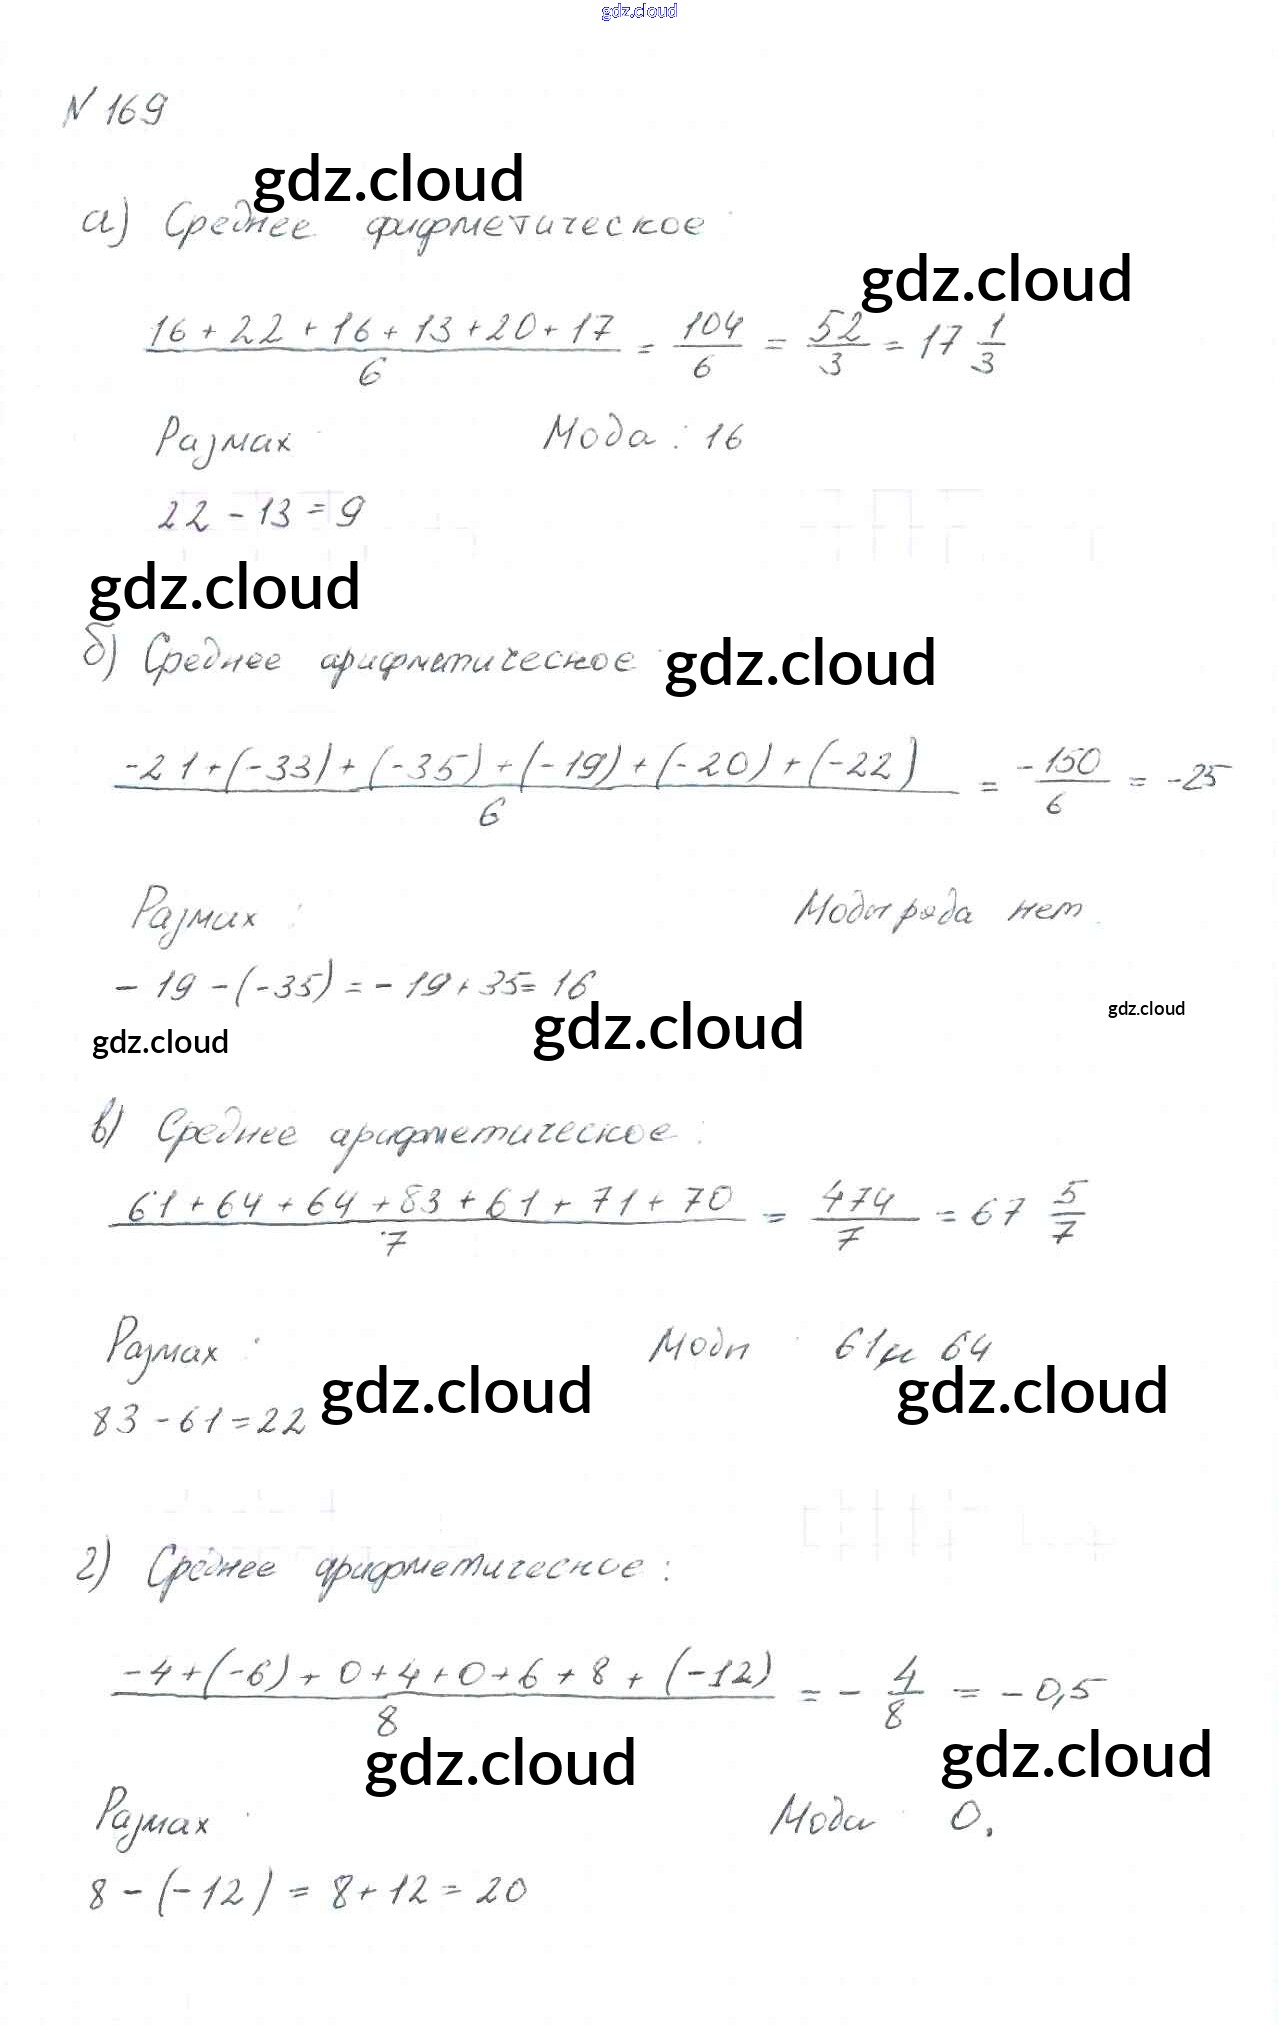 gdz.cloud
N 169
gdz.cloud
а) Среднее арифметическое
gdz.cloud
16 + 22 + 16 + 13 + 20 + 17 / 6 = 104 / 6 = 52 / 3 = 17 1/3
Размах Мода : 16
22 - 13 = 9
gdz.cloud
б) Среднее арифметическое
gdz.cloud
-21 + (-33) + (-35) + (-19) + (-20) + (-22) / 6 = -150 / 6 = -25
Размах : Моды ряда нет
- 19 - (-35) = - 19 + 35 = 16
gdz.cloud gdz.cloud gdz.cloud
в) Среднее арифметическое :
61 + 64 + 64 + 83 + 61 + 71 + 70 / 7 = 474 / 7 = 67 5/7
Размах : Моды : 61 и 64
gdz.cloud gdz.cloud
83 - 61 = 22
г) Среднее арифметическое :
-4 + (-6) + 0 + 4 + 0 + 6 + 8 + (-12) / 8 = - 4/8 = - 0,5
gdz.cloud gdz.cloud
Размах : Мода : 0.
8 - (-12) = 8 + 12 = 20